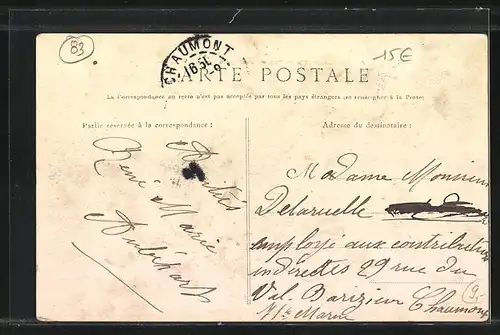 83
CHAUMONT
15€
CARTE POSTALE
La Correspondance au recto n'est pas acceptée par tous les pays étrangers (se renseigner à la Poste)
Partie réservée à la correspondance :
Adresse du destinataire :
Amitiés
René Marie
Madame Monsieur
Delaruelle
employé aux contributions
indirectes 29 rue du
Val Barizien Chaumont
Hte Marne
9.-